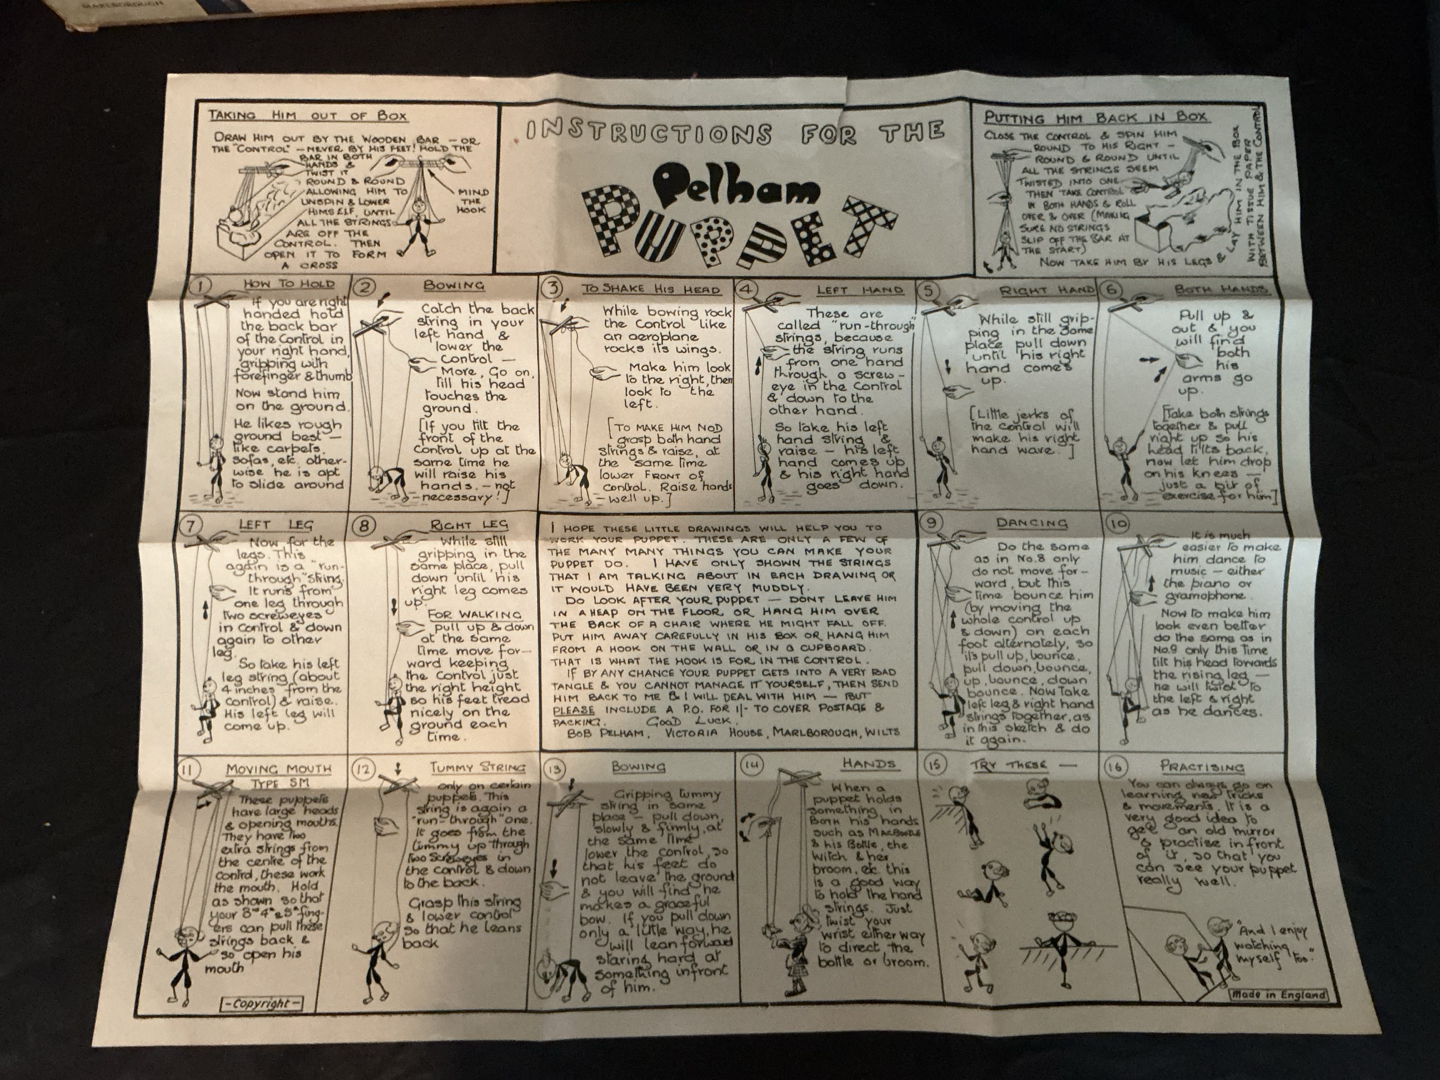 MARLBOROUGH
TAKING HIM OUT OF BOX
DRAW HIM OUT BY THE WOODEN BAR – OR
THE "CONTROL" – NEVER BY HIS FEET! HOLD THE
BAR IN BOTH
HANDS &
TWIST IT
ROUND & ROUND
ALLOWING HIM TO
UNSPIN & LOWER
HIMSELF, UNTIL
ALL THE STRINGS
ARE OFF THE
CONTROL. THEN
OPEN IT TO FORM
A CROSS
MIND
THE
HOOK
INSTRUCTIONS FOR THE
Pelham
PUPPET
PUTTING HIM BACK IN BOX
CLOSE THE CONTROL & SPIN HIM
ROUND TO HIS RIGHT –
ROUND & ROUND UNTIL
ALL THE STRINGS SEEM
TWISTED INTO ONE
THEN TAKE CONTROL
IN BOTH HANDS & ROLL
OVER & OVER (MAKING
SURE NO STRINGS
SLIP OFF THE BAR AT
THE START)
NOW TAKE HIM BY HIS LEGS &
LAY HIM IN THE BOX
WITH TISSUE PAPER
BETWEEN HIM & THE CONTROL
1 HOW TO HOLD
If you are right
handed hold
the back bar
of the Control in
your right hand,
gripping with
forefinger & thumb
Now stand him
on the ground.
He likes rough
ground best –
like carpets,
sofas, etc. other-
wise he is apt
to slide around
2 BOWING
Catch the back
string in your
left hand &
lower the
Control –
More, Go on,
till his head
touches the
ground.
[If you tilt the
front of the
Control up at the
same time he
will raise his
hands. – not
necessary!]
3 TO SHAKE HIS HEAD
While bowing rock
the Control like
an aeroplane
rocks its wings.
Make him look
to the right, then
look to the
left.
[TO MAKE HIM NOD
grasp both hand
strings & raise, at
the same time
lower FRONT OF
control. Raise hands
well up.]
4 LEFT HAND
These are
called "run-through"
strings, because
the string runs
from one hand
through a screw-
eye in the Control
& down to the
other hand.
So take his left
hand string &
raise – his left
hand comes up
& his right hand
goes down.
5 RIGHT HAND
While still grip-
ping in the same
place pull down
until his right
hand comes
up.
[Little jerks of
the control will
make his right
hand wave.]
6 BOTH HANDS.
Pull up &
out & you
will find
both
his
arms go
up.
[Take both strings
together & pull
right up so his
head tilts back,
now let him drop
on his knees –
just a bit of
exercise for him]
7 LEFT LEG
Now for the
legs. This
again is a "run-
through" string.
It runs from
one leg through
two screweyes
in Control & down
again to other
leg.
So take his left
leg string (about
4 inches from the
control) & raise.
His left leg will
come up.
8 RIGHT LEG
While still
gripping in the
same place, pull
down until his
right leg comes
up.
FOR WALKING
pull up & down
at the same
time move for-
ward keeping
the Control just
the right height
so his feet tread
nicely on the
ground each
time.
I HOPE THESE LITTLE DRAWINGS WILL HELP YOU TO
WORK YOUR PUPPET. THESE ARE ONLY A FEW OF
THE MANY MANY THINGS YOU CAN MAKE YOUR
PUPPET DO. I HAVE ONLY SHOWN THE STRINGS
THAT I AM TALKING ABOUT IN EACH DRAWING OR
IT WOULD HAVE BEEN VERY MUDDLY.
DO LOOK AFTER YOUR PUPPET – DONT LEAVE HIM
IN A HEAP ON THE FLOOR, OR HANG HIM OVER
THE BACK OF A CHAIR WHERE HE MIGHT FALL OFF.
PUT HIM AWAY CAREFULLY IN HIS BOX OR HANG HIM
FROM A HOOK ON THE WALL OR IN A CUPBOARD.
THAT IS WHAT THE HOOK IS FOR IN THE CONTROL.
IF BY ANY CHANCE YOUR PUPPET GETS INTO A VERY BAD
TANGLE & YOU CANNOT MANAGE IT YOURSELF, THEN SEND
HIM BACK TO ME & I WILL DEAL WITH HIM – BUT
PLEASE INCLUDE A P.O. FOR 1/- TO COVER POSTAGE &
PACKING. GOOD LUCK.
BOB PELHAM, VICTORIA HOUSE, MARLBOROUGH, WILTS
9 DANCING
Do the same
as in No.8 only
do not move for-
ward, but this
time bounce him
(by moving the
whole control up
& down) on each
foot alternately, so
its pull up, bounce,
pull down, bounce,
up, bounce, down
bounce. Now take
left leg & right hand
strings together, as
in this sketch & do
it again.
10
It is much
easier to make
him dance to
music – either
the piano or
gramophone.
Now to make him
look even better
do the same as in
No.9 only this time
tilt his head towards
the rising leg –
he will twist to
the left & right
as he dances.
11 MOVING MOUTH
TYPE SM
These puppets
have large heads
& opening mouths.
They have two
extra strings from
the centre of the
control, these work
the mouth. Hold
as shown so that
your 3rd 4th & 5th fing-
ers can pull these
strings back &
so open his
mouth
– Copyright –
12 TUMMY STRING
only on certain
puppets. This
string is again a
"run-through" one.
It goes from the
tummy up through
two screweyes in
the control & down
to the back.
Grasp this string
& lower control
so that he leans
back
13 BOWING
Gripping tummy
string in same
place – pull down,
slowly & firmly, at
the same time
lower the control, so
that his feet do
not leave the ground
& you will find he
makes a graceful
bow. If you pull down
only a little way, he
will lean forward
staring hard at
something in front
of him.
14 HANDS
When a
puppet holds
something in
BOTH his hands
such as MacBoozle
& his Bottle, the
Witch & her
broom, etc. this
is a good way
to hold the hand
strings. Just
twist your
wrist either way
to direct the
bottle or broom.
15 TRY THESE –
16 PRACTISING
You can always go on
learning new tricks
& movements. It is a
very good idea to
get an old mirror
& practise in front
of it, so that you
can see your puppet
really well.
"And I enjoy
watching
myself, too."
Made in England